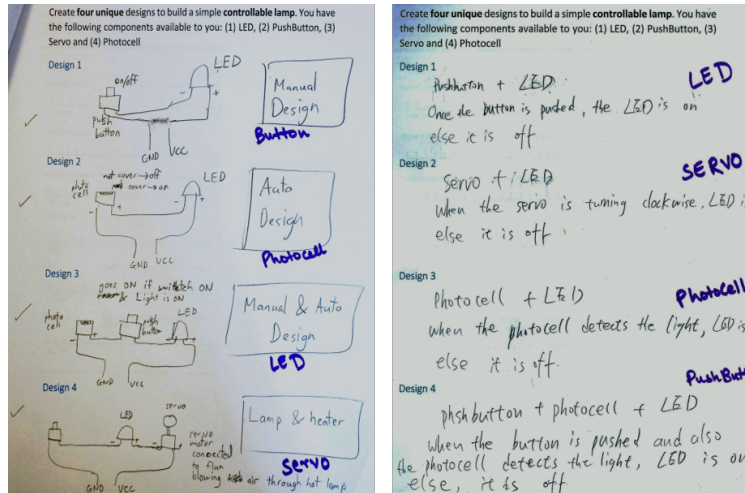 Create four unique designs to build a simple controllable lamp. You have
the following components available to you: (1) LED, (2) PushButton, (3)
Servo and (4) Photocell
Design 1
on/off
LED
push
button
+
GND
VCC
Manual
Design
Button
Design 2
not cover → off
cover → on
photo
cell
LED
-
+
GND
VCC
Auto
Design
Photocell
Design 3
goes ON if switch ON
& Light is ON
photo
cell
push
button
LED
GND
VCC
Manual & Auto
Design
LED
Design 4
LED
servo
servo
motor
connected
to
blowing air through hot lamp
GND
VCC
Lamp & heater
Servo
Create four unique designs to build a simple controllable lamp. You have
the following components available to you: (1) LED, (2) PushButton, (3)
Servo and (4) Photocell
Design 1
LED
Pushbutton + LED
Once the button is pushed, the LED is on
else it is off
Design 2
SERVO
Servo + LED
When the servo is turning clockwise, LED i
else it is off.
Design 3
Photocell + LED
Photocell
when the photocell detects the light, LED is
else it is off.
PushBut
Design 4
phshbutton + photocell + LED
When the button is pushed and also
the photocell detects the light, LED is on
else, it is off